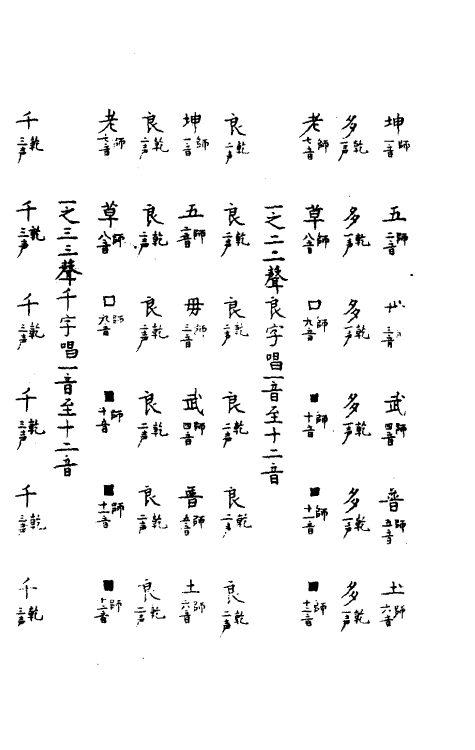 坤師一音 五師二音 三音 武師四音 普師五音 土師六音
多乾一声 多乾一声 多乾一声 多乾一声 多乾一声 多乾一声
老師七音 草師八音 口師九音 ■師十音 ■師十一音 ■師十二音
一之二二聲良字唱一音至十二音
良乾二声 良乾二声 良乾二声 良乾二声 良乾二声 良乾二声
坤師一音 五師二音 毋師三音 武師四音 普師五音 土師六音
良乾二声 良乾二声 良乾二声 良乾二声 良乾二声 良乾二声
老師七音 草師八音 口師九音 ■師十音 ■師十一音 ■師十二音
一之三三聲千字唱一音至十二音
千乾三声 千乾三声 千乾三声 千乾三声 千乾三声 千乾三声